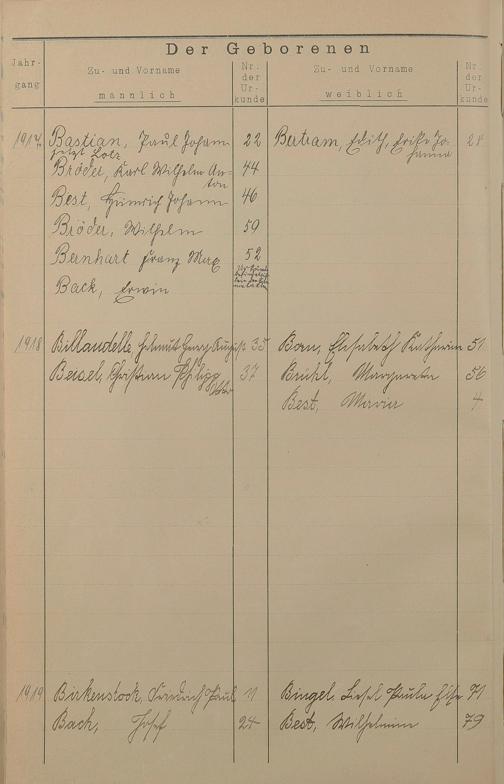 Der Geborenen
Jahr-
gang
Zu- und Vorname
männlich
Nr.
der
Ur-
kunde
Zu- und Vorname
weiblich
Nr.
der
Ur-
kunde
1917. Bastian, Paul Johann 22 Bertram, Edith, Erika Jo-
jetzt Lotz hanna
Bröder, Karl Wilhelm An- 44
ton
Best, Heinrich Johann 46
Bröder, Wilhelm 59
Bernhart Franz Max 52
Back, Erwin
1918 Billaudelle, Helmut Georg August 35 Born, Elisabeth Katharina 51
Beisel, Christian Philipp 37 Brühl, Margareta 56
Otto
Best, 4
1919 Birkenstock, Friedrich Paul 11 Bingel, Liesel Paula Else 71
Bach, Josef 24 Best, Wilhelmine 79